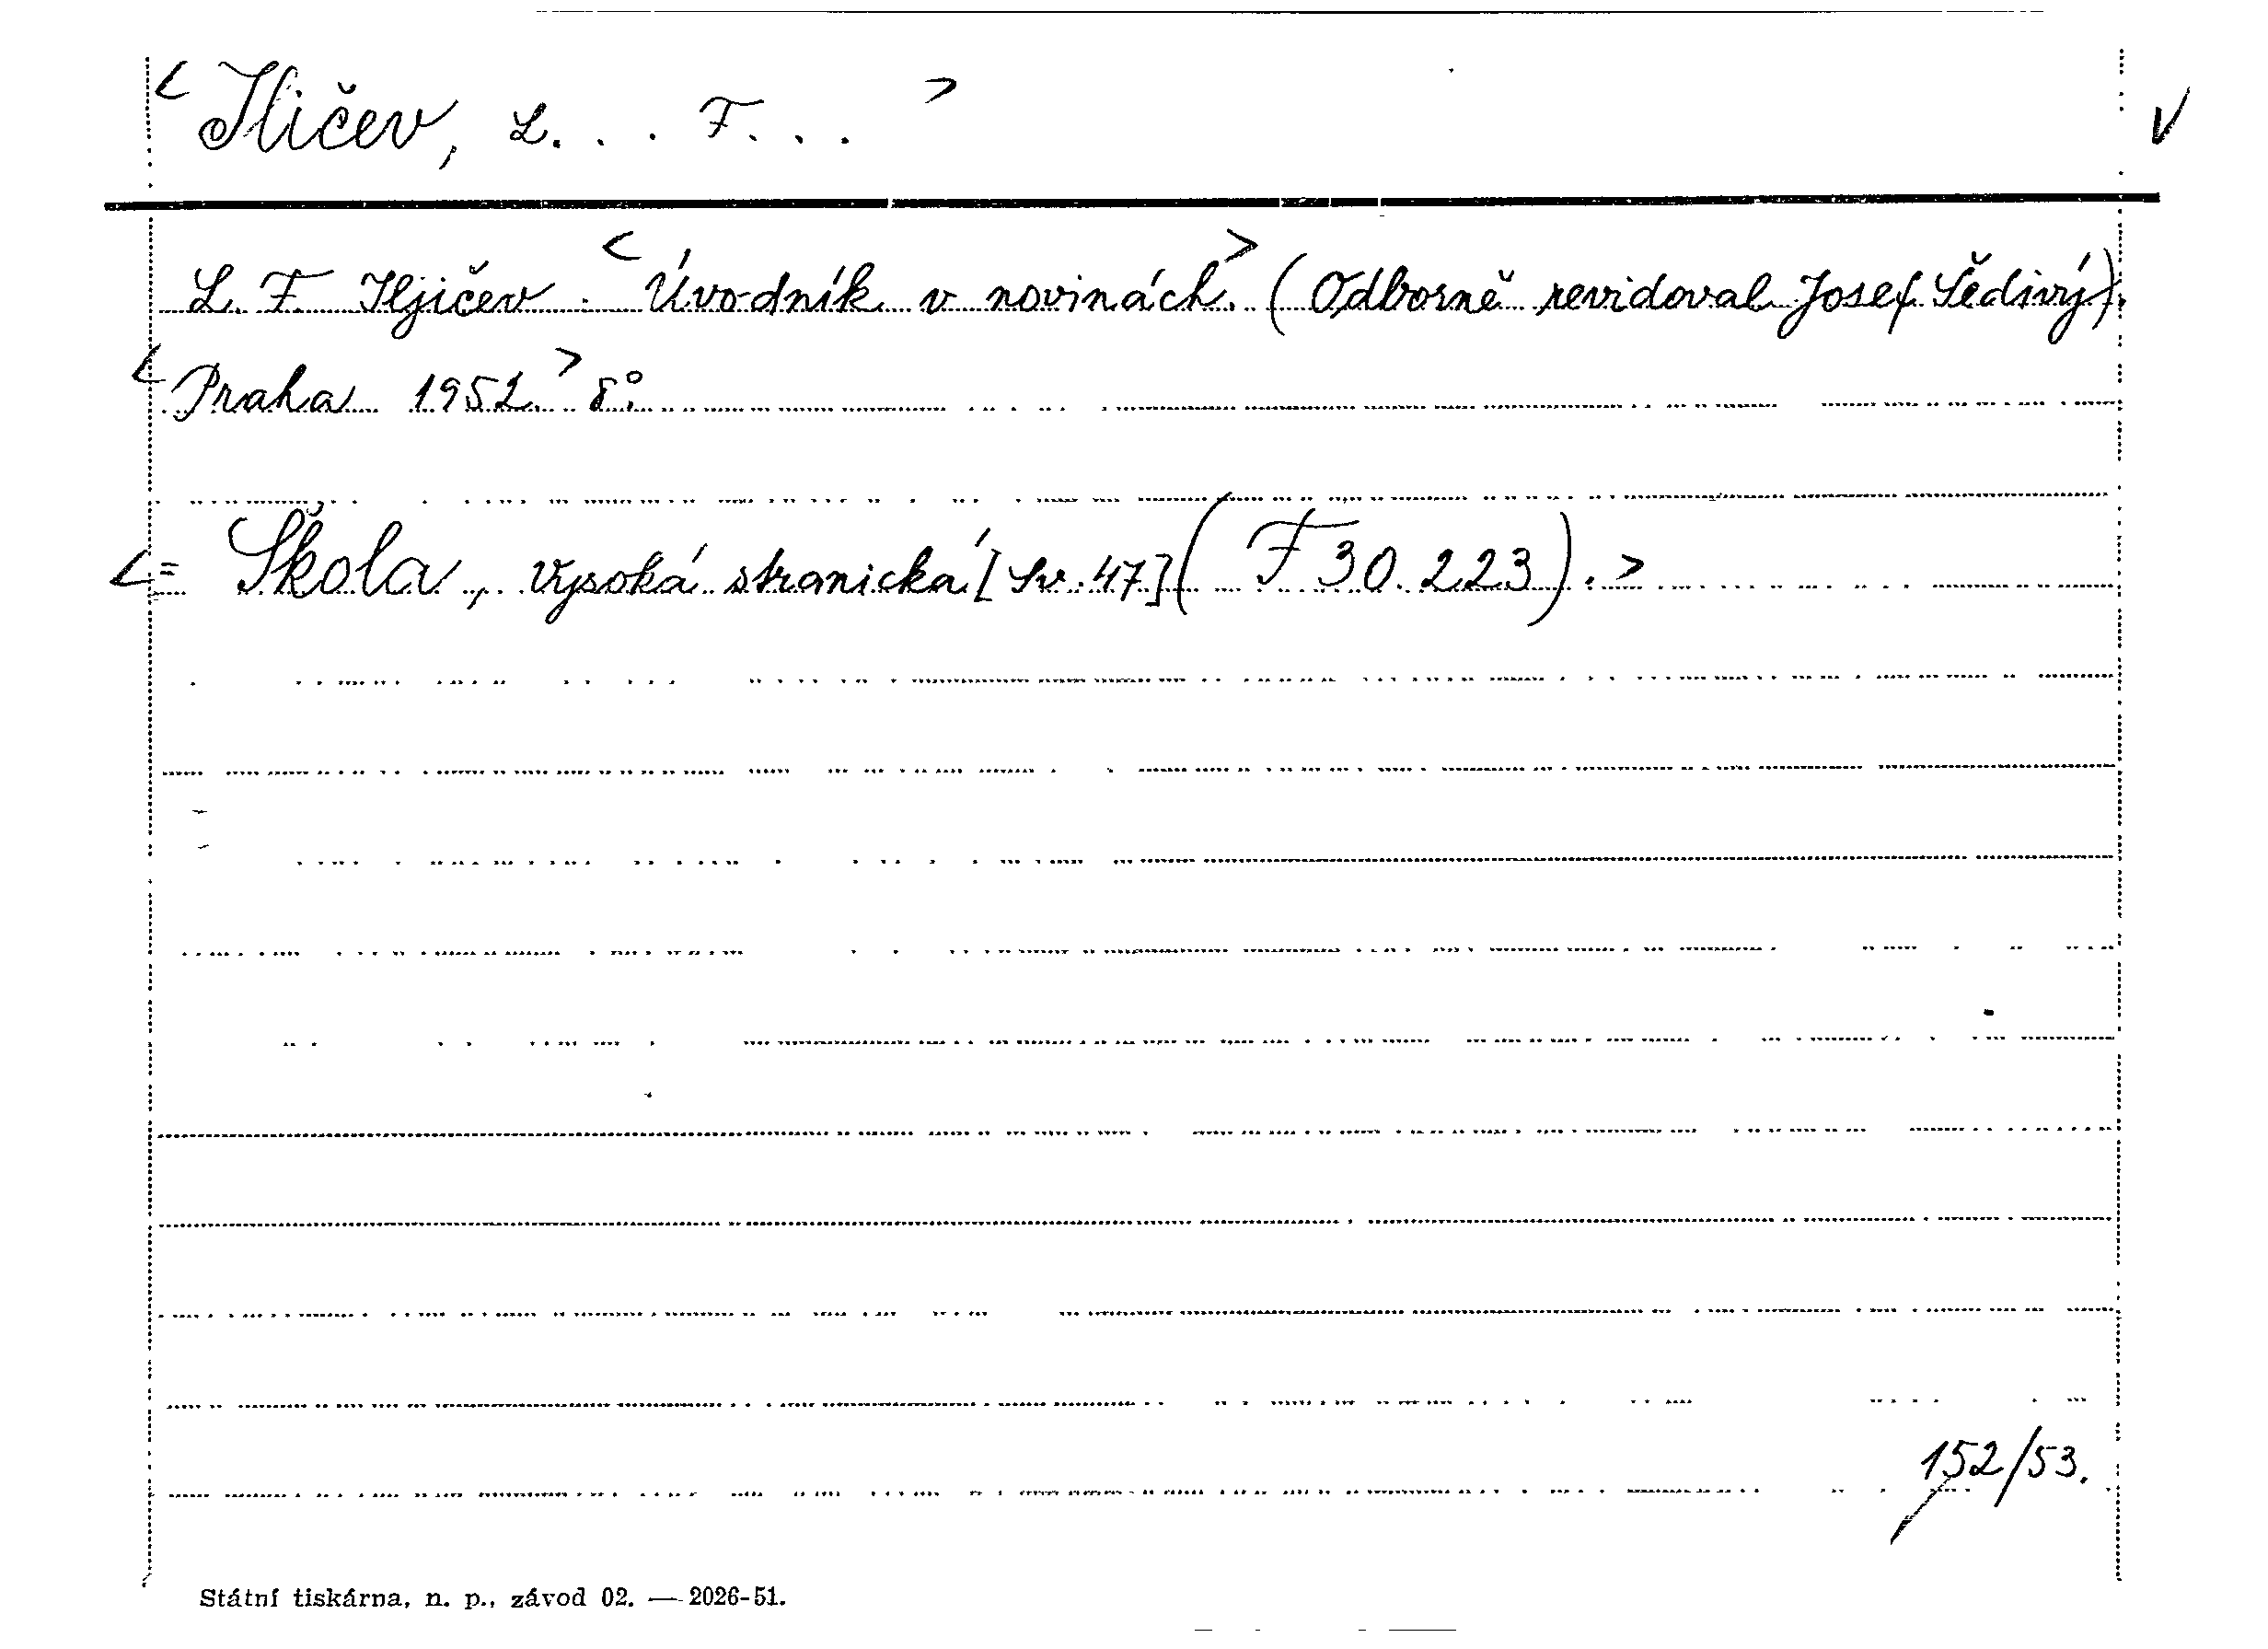 < Iličev, L. . . F. . . > V
L. F. Iljičev. <Úvodník v novinách.> (Odborně revidoval Josef Šedivý).
<Praha 1952> 8°.
<= Škola, vysoká stranická [Sv. 47] (F 30.223). >
152/53.
Státní tiskárna, n. p., závod 02. — 2026-51.